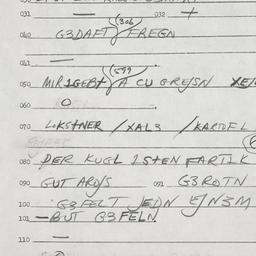 031 — 032 +
(306)
040 G3DAFT FREGN
041 —
(599)
050 MIR1GEBT A CU GREJSN
060 O
070 LIKSTNER / XAL3 / KARTOFL
080 DER KUGL 1STEN FARTIK
090 GUT AROJS 091 G3ROTN
100 G3FELT JEDN EJN3M
101 — BUT G3FELN
110 —